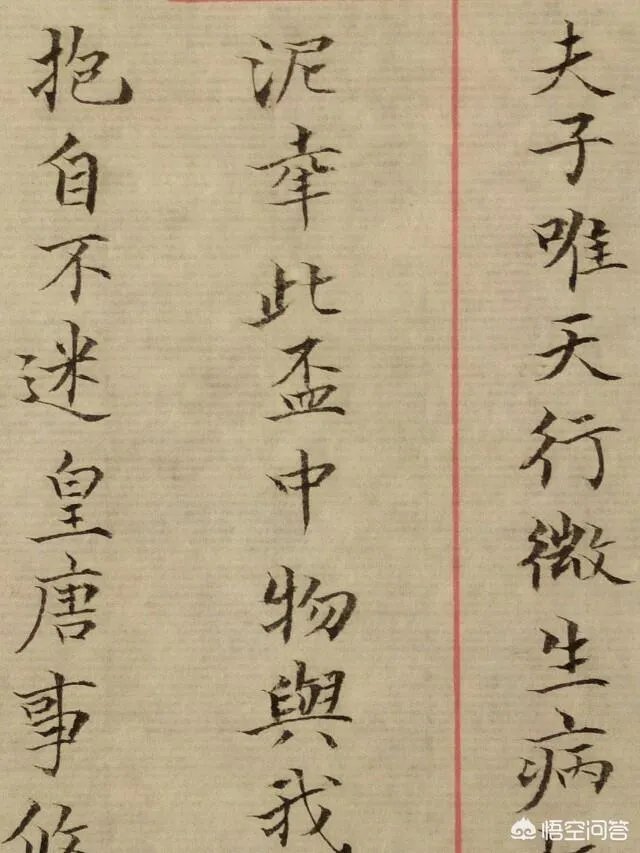 夫子唯天行微生病
泥幸此盃中物與我
抱自不迷皇唐事
悟空问答